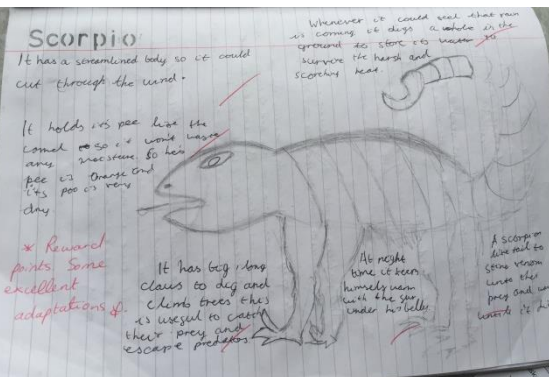 Scorpio
It has a streamlined body so it could
cut through the wind.
Whenever it could feel that rain
is coming it digs a whole in the
ground to store its water to
survive the harsh and
scorching heat.
It holds its pee like the
camel so it won't waste
any moisture. So his
pee is Orange and
its poo is very
dry
* Reward
points. Some
excellent
adaptations
It has big long
claws to dig and
climb trees this
is useful to catch
their prey and
escape predators
At night
time it keeps
himself warm
with the fur
under his belly.
A scorpion
like tail to
sting venom
unto the
prey and